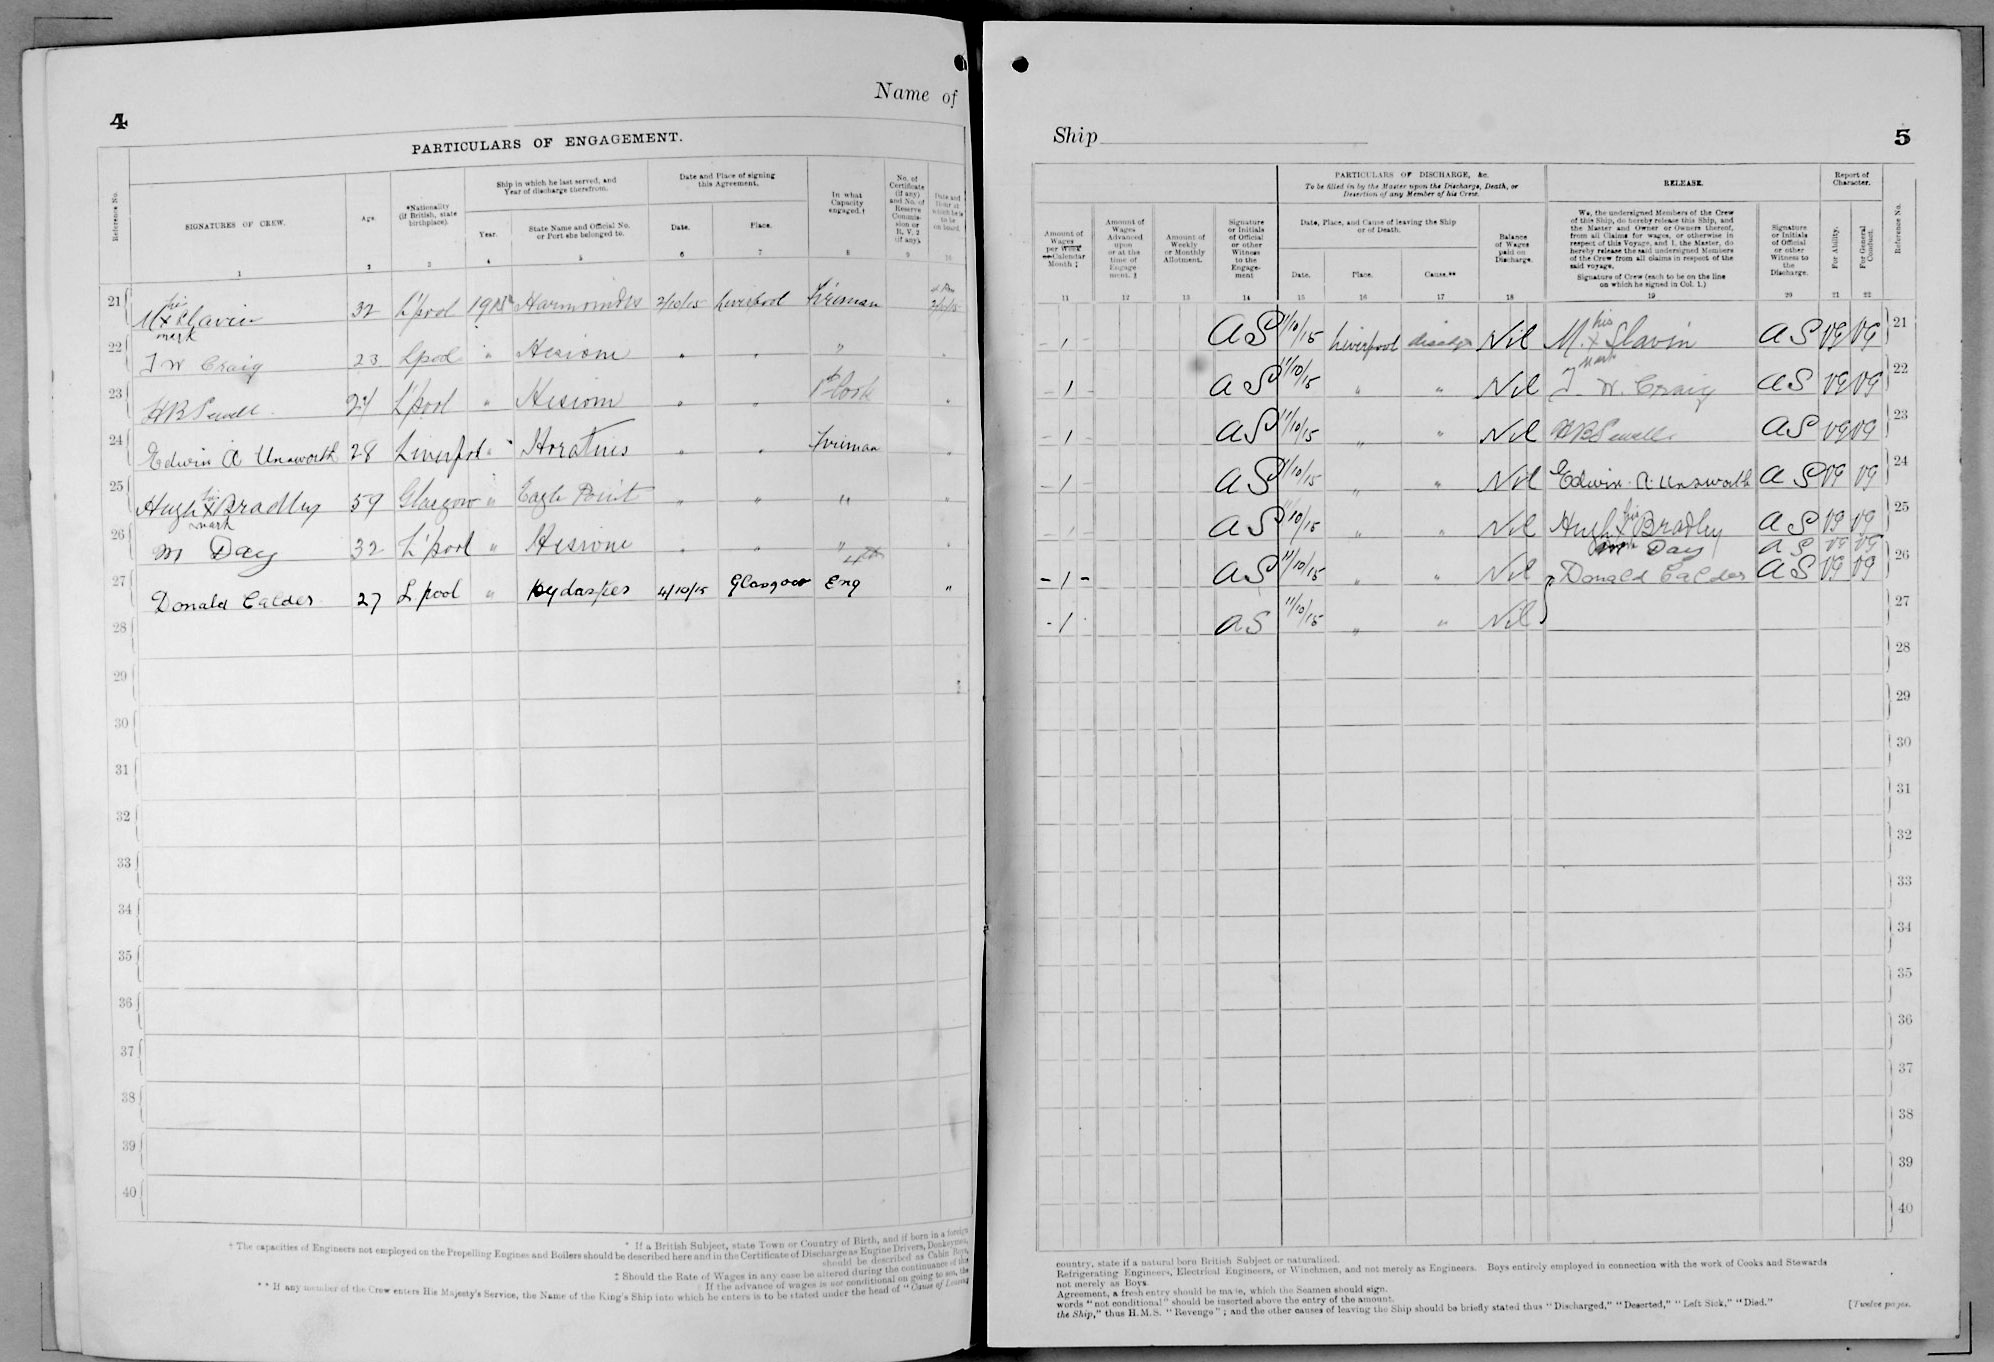 Name of
4
PARTICULARS OF ENGAGEMENT.
Reference No.
SIGNATURES OF CREW.
Age.
*Nationality (if British, state birthplace).
Ship in which he last served, and Year of discharge therefrom.
Year.
State Name and Official No. or Port she belonged to.
Date and Place of signing this Agreement.
Date.
Place.
In what Capacity engaged.†
No. of Certificate (if any) and No. of Reserve Commission or R.V.2 (if any).
Date and Hour at which he is to be on board.
1 2 3 4 5 6 7 8 9 10
21 M his x mark Slavin 32 L'pool 1915 2/10/15 Liverpool Fireman
22 J W Craig 23 Lpool " Hesione " " "
23 H B Sewell L'pool " Hesione " " Cook "
24 Edwin A Unsworth 28 Liverpool " Horatius " " Fireman "
25 Hugh his x mark Bradley 59 Glasgow " Eagle Point " " " "
26 M Day 32 L'pool " Hesione " " " "
27 Donald Calder 27 L'pool " Hydaspes 4/10/15 Glasgow 4th Eng "
28
29
30
31
32
33
34
35
36
37
38
39
40
* If a British Subject, state Town or Country of Birth, and if born in a foreign
† The capacities of Engineers not employed on the Propelling Engines and Boilers should be described here and in the Certificate of Discharge as Engine Drivers, Donkeymen,
should be described as Cabin Boys,
‡ Should the Rate of Wages in any case be altered during the continuance of the
If the advance of wages is not conditional on going to sea, the
** If any member of the Crew enters His Majesty's Service, the Name of the King's Ship into which he enters is to be stated under the head of "Cause of Leaving
Ship
5
Amount of Wages per Week or Calendar Month ‡
Amount of Wages Advanced upon or at the time of Engagement. ‡
Amount of Weekly or Monthly Allotment.
Signature or Initials of Official or other Witness to the Engagement
PARTICULARS OF DISCHARGE, &c.
To be filled in by the Master upon the Discharge, Death, or Desertion of any Member of his Crew.
Date, Place, and Cause of leaving the Ship or of Death.
Date.
Place.
Cause.**
Balance of Wages paid on Discharge.
RELEASE.
We, the undersigned Members of the Crew of this Ship, do hereby release this Ship, and the Master and Owner or Owners thereof, from all Claims for wages, or otherwise in respect of this Voyage, and I, the Master, do hereby release the said undersigned Members of the Crew from all claims in respect of the said voyage.
Signature of Crew (each to be on the line on which he signed in Col. 1.)
Signature or Initials of Official or other Witness to the Discharge.
Report of Character.
For Ability.
For General Conduct.
Reference No.
11 12 13 14 15 16 17 18 19 20 21 22
-1- AS 11/10/15 Liverpool Nil M. his x mark Slavin AS VG VG 21
-1- AS 11/10/15 " " Nil J. W. Craig AS VG VG 22
-1- AS 11/10/15 " " Nil H B Sewell AS VG VG 23
-1- AS 11/10/15 " " Nil Edwin A. Unsworth AS VG VG 24
-1- AS 11/10/15 " " Nil Hugh his x mark Bradley AS VG VG 25
M Day AS VG VG
-1- AS 11/10/15 " " Nil Donald Calder AS VG VG 26
-1- AS 11/10/15 " " Nil 27
28
29
30
31
32
33
34
35
36
37
38
39
40
country, state if a natural born British Subject or naturalized.
Refrigerating Engineers, Electrical Engineers, or Winchmen, and not merely as Engineers. Boys entirely employed in connection with the work of Cooks and Stewards
not merely as Boys.
Agreement, a fresh entry should be made, which the Seamen should sign.
words "not conditional" should be inserted above the entry of the amount.
the Ship," thus H.M.S. "Revenge"; and the other causes of leaving the Ship should be briefly stated thus "Discharged," "Deserted," "Left Sick," "Died."
[Twelve pages.